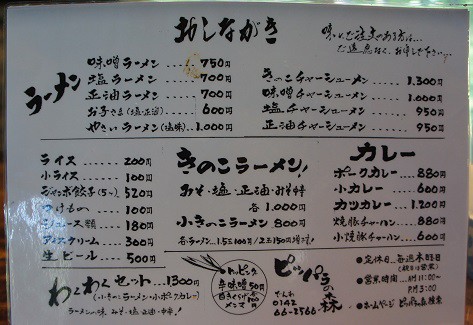 おしながき
味にご注文のある方は…
ご遠慮なく、お申し下さい…
ラーメン
味噌ラーメン……750円
塩ラーメン……700
正油ラーメン……700
お子さま(塩・正油)……600
やさいラーメン(塩味)…1,000円
きのこチャーシューメン……1,300
味噌チャーシューメン……1,000
塩チャーシューメン……950
正油チャーシューメン……950
ライス……200円
小ライス……100
ジャンボ餃子(5ヶ)…520
つけもの……100
ジュース類……180
アイスクリーム……300
生ビール……500
きのこラーメン!
みそ・塩・正油・みそ辛
各1,000
小きのこラーメン……800
各ラーメン1.5=100円/2玉150円増です。
カレー
ポークカレー……880
小カレー……600
カツカレー……1,200
焼豚チャーハン……880
小焼豚チャーハン……600
わくわくセット…1300円
(小きのこラーメン・小ポークカレー)
ラーメンの味 みそ・塩・正油・中辛!
トッピング
辛味噌50円
メンマ
ピッパラの森
でんわ
0142
66-2566
定休日、毎週木曜日
(祝日は営業)
営業時間、AM11:00~
PM3:00
ホームページ